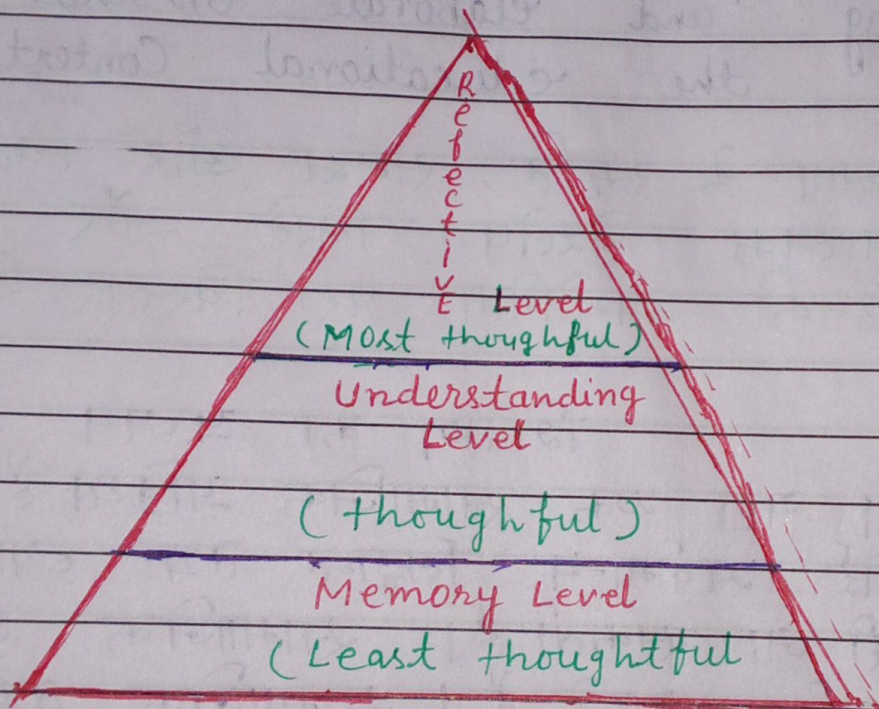 RefectivE Level
(Most thoughful)
Understanding
Level
(thoughful)
Memory Level
(Least thoughtful